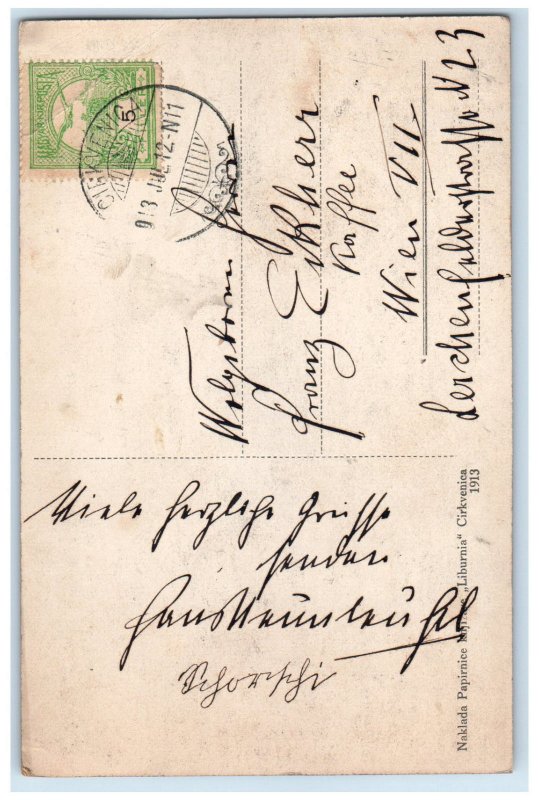 CIRKVENICA
913 JUL 12-N11
5
Wolgeboren Herr
Franz Eckherr
Kaffee
Wien VII
Lerchenfelderstrasse N 23
Viele herzliche Grüsse
senden
Hans
Schorschi
Nakladа Papirnice "Liburnia" Cirkvenica
1913